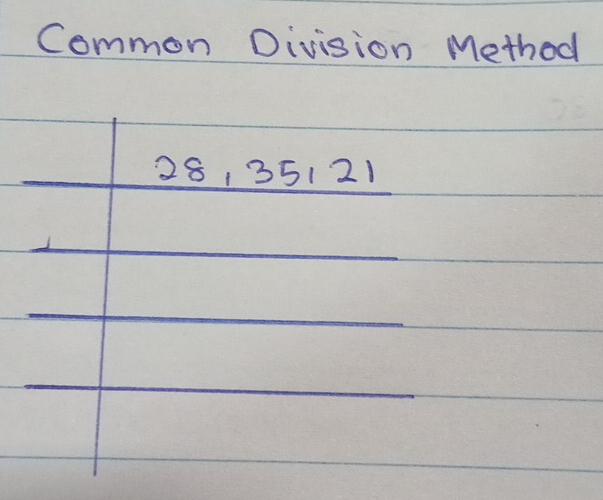 Common Division Method
28, 35, 21